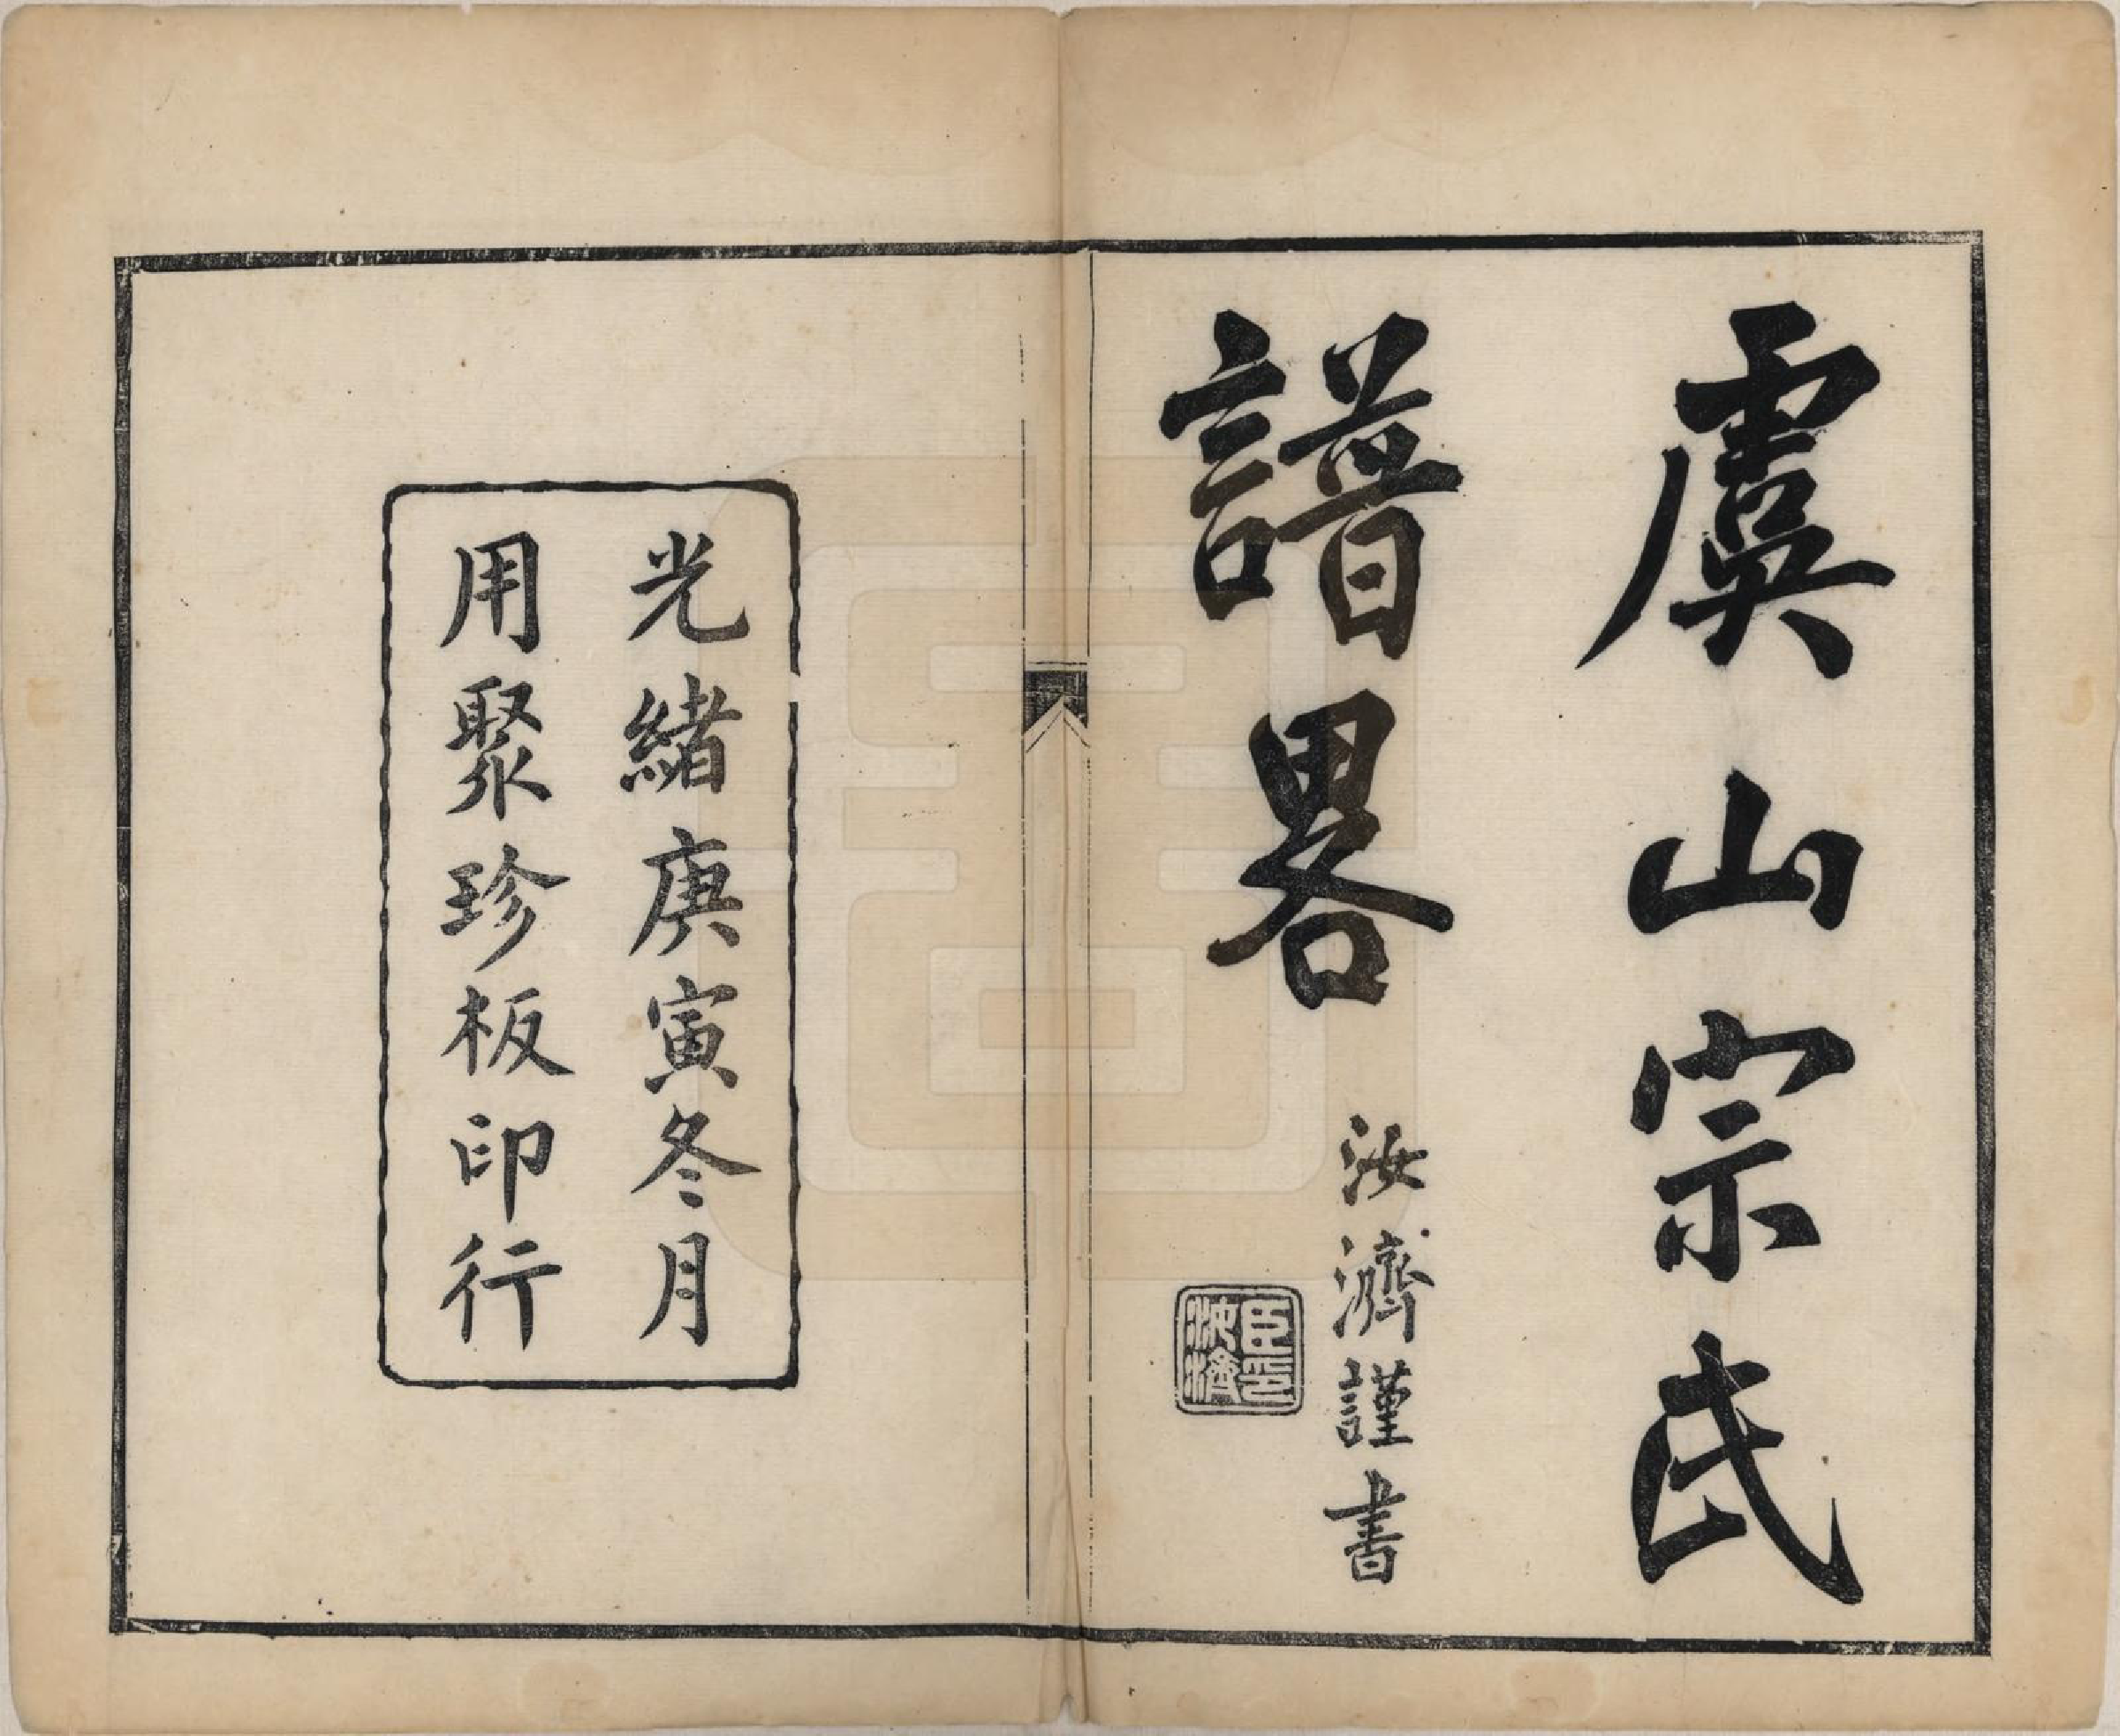 虞山宗氏
譜畧
汝濟謹書
臣印
汝濟
光緒庚寅冬月
用聚珍板印行